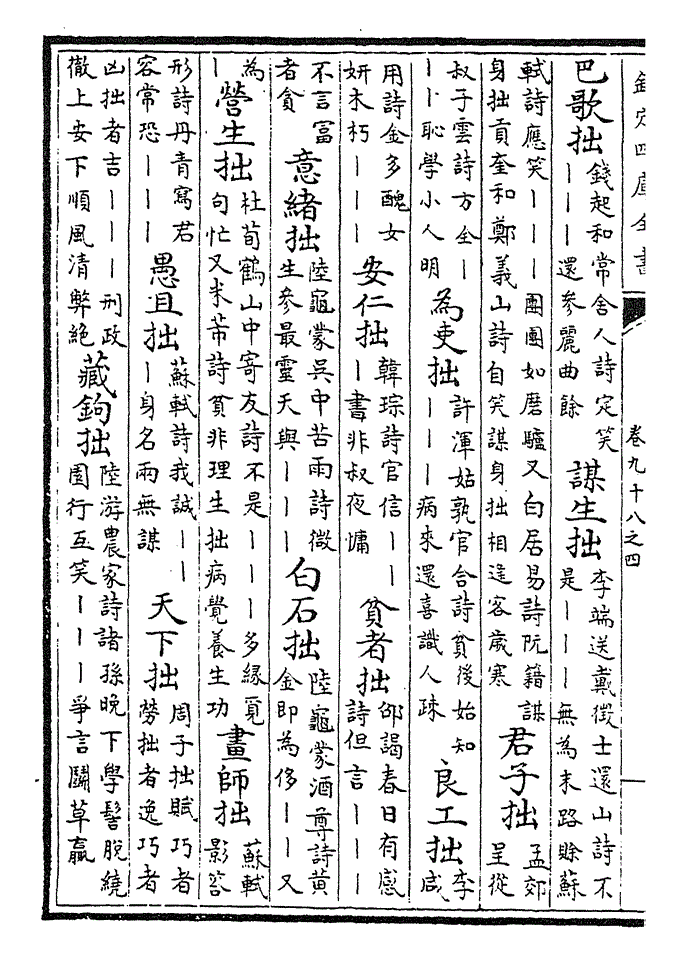 欽定四庫全書 卷九十八之四
巴歌拙 錢起和常舍人詩定笑｜｜｜還參麗曲餘 謀生拙 李端送戴徵士還山詩不是｜｜｜無為末路賒蘇
軾詩應笑｜｜｜團團如磨驢又白居易詩阮籍謀身拙貢奎和鄭義山詩自笑謀身拙相逢客歲寒 君子拙 孟郊呈從
叔子雲詩方全｜｜｜恥學小人明 為吏拙 許渾姑孰官舍詩貧後始知｜｜｜病來還喜識人疎 良工拙 李咸
用詩金多醜女妍木朽｜｜｜ 安仁拙 韓琮詩官信｜｜｜書非叔夜慵 貧者拙 邵謁春日有感詩但言｜｜｜
不言富者貪 意緒拙 陸龜蒙吳中苦雨詩微生參最靈天與｜｜｜ 白石拙 陸龜蒙酒尊詩黃金即為侈｜｜又
為｜ 營生拙 杜荀鶴山中寄友詩不是｜｜｜多緣覓句忙又朱芾詩貧非理生拙病覺養生功 畫師拙 蘇軾影答
形詩丹青寫君容常恐｜｜｜ 愚且拙 蘇軾詩我誠｜｜｜身名兩無謀 天下拙 周子拙賦巧者勞拙者逸巧者
凶拙者吉｜｜｜刑政徹上安下順風清弊絕 藏鉤拙 陸游農家詩諸孫晚下學髻脫繞園行互笑｜｜｜爭言鬭草贏